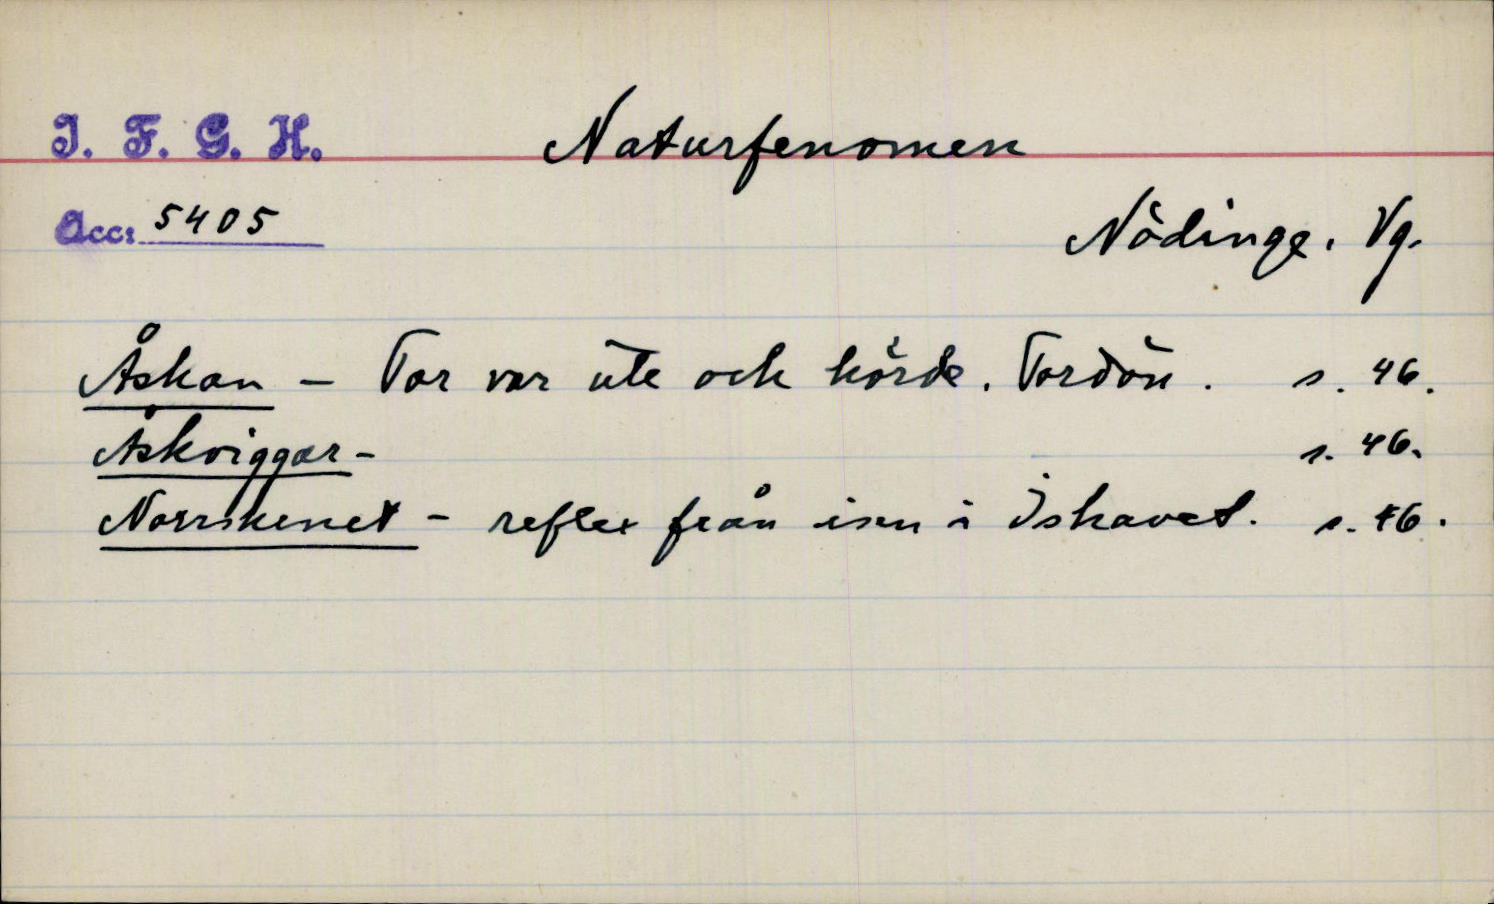 I. F. G. H.
Naturfenomen
Acc: 5405
Nödinge. Vg.
Åskan – Tor var ute och körde. Tordön. s. 46.
Åskviggar – s. 46.
Norrskenet – reflex från isen i Ishavet. s. 46.